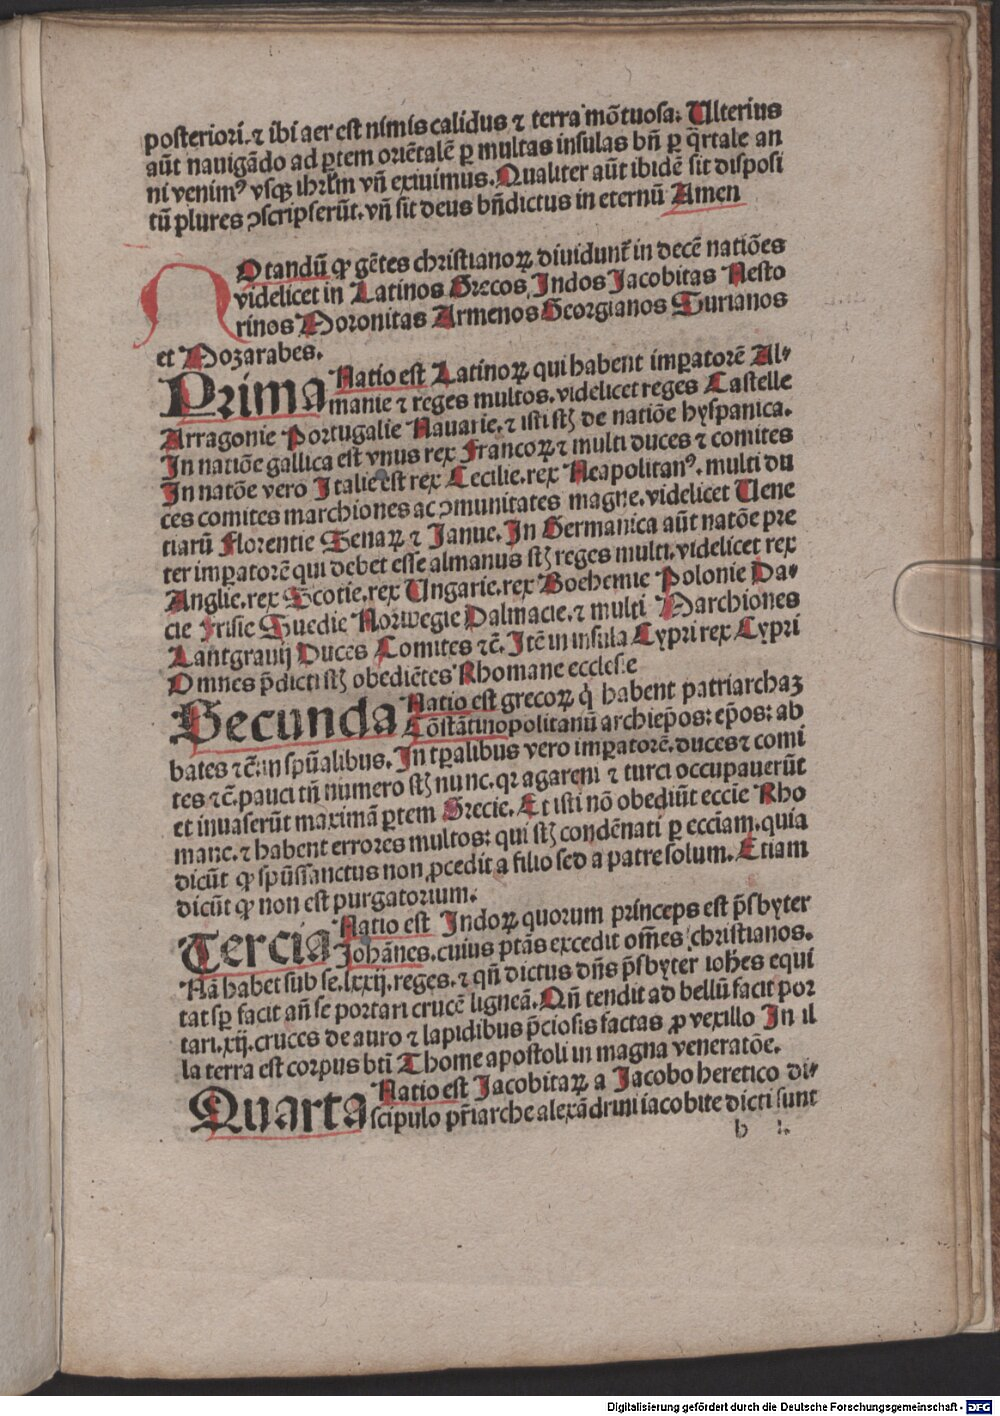 posteriori. ⁊ ibi aer est nimis calidus ⁊ terra mõtuosa: Ulterius
aũt nauigãdo ad ꝑtem oriẽtalẽ ꝑ multas insulas bñ ꝑ q̃rtale an
ni venimꝰ vsqꝫ ihrlm̃ vñ exiuimus. Qualiter aũt ibidẽ sit disposi
tũ plures ꝯscripserũt. vñ sit deus bñdictus in eternũ Amen
Notandũ ꝙ gẽtes christianoꝝ diuidunt̃ in decẽ natiões
videlicet in Latinos Grecos Indos Jacobitas Nesto
rinos Moronitas Armenos Georgianos Surianos
et Mozarabes.
Prima Natio est Latinoꝝ qui habent imꝑatorẽ Al⸗
manie ⁊ reges multos. videlicet reges Castelle
Arragonie Portugalie Nauarie. ⁊ isti sũt de natiõe hyspanica.
In natiõe gallica est vnus rex Francoꝝ ⁊ multi duces ⁊ comites
In natõe vero Italie est rex Cecilie. rex Neapolitanꝰ. multi du
ces comites marchiones ac ꝯmunitates magne. videlicet Uene
tiarũ Florentie Senaꝝ ⁊ Janue. In Germanica aũt natõe pre
ter imꝑatorẽ qui debet esse almanus sũt reges multi. videlicet rex
Anglie. rex Scotie. rex Ungarie. rex Boehemie Polonie Da⸗
cie Frisie Suedie Norwegie Dalmacie. ⁊ multi Marchiones
Lantgrauij Duces Comites ⁊c̃. Itẽ in insula Cypri rex Cypri
Omnes p̃dicti sũt obediẽtes Rhomane ecclesie
Secunda Natio est grecoꝝ q̇ habent patriarchaꝫ
Cõstãtinopolitanũ archiep̃os: ep̃os: ab
bates ⁊c̃. in spũalibus. In tꝑalibus vero imꝑatorẽ. duces ⁊ comi
tes ⁊c̃. pauci tñ numero sũt nunc. qꝛ agareni ⁊ turci occupauerũt
et inuaserũt maximã ꝑtem Grecie. Et isti nõ obediũt eccĩe Rho
mane. ⁊ habent errores multos: qui sũt condẽnati ꝑ eccĩam. quia
dicũt ꝙ spũssanctus non ꝓcedit a filio sed a patre solum. Etiam
dicũt ꝙ non est purgatorium.
Tercia Natio est Indoꝝ quorum princeps est p̃sbyter
Johãnes. cuius ptãs excedit om̃es christianos.
Nã habet sub se. lxxij. reges. ⁊ qñ dictus dñs p̃sbyter ioh̃es equi
tat sꝑ facit añ se portari crucẽ ligneã. Qñ tendit ad bellũ facit por
tari. xij. cruces de auro ⁊ lapidibus p̃ciosis factas ꝓ vexillo In il
la terra est corpus bt̃i Thome apostoli in magna veneratõe.
Quarta Natio est Jacobitaꝝ a Jacobo heretico di⸗
scipulo pr̃iarche alexãdrini iacobite dicti sunt
b i.
Digitalisierung gefördert durch die Deutsche Forschungsgemeinschaft - DFG